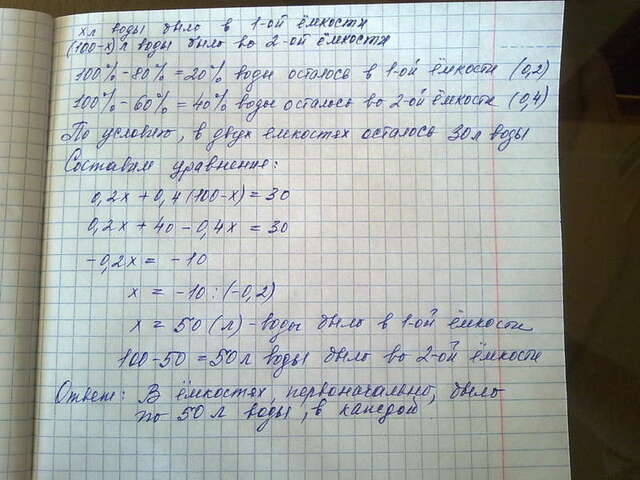 x л воды было в 1-ой ёмкости
(100-x) л воды было во 2-ой ёмкости
100% - 80% = 20% воды осталось в 1-ой ёмкости (0,2)
100% - 60% = 40% воды осталось во 2-ой ёмкости (0,4)
По условию, в двух емкостях осталось 30 л воды
Составим уравнение:
0,2x + 0,4(100-x) = 30
0,2x + 40 - 0,4x = 30
-0,2x = -10
x = -10 : (-0,2)
x = 50 (л) - воды было в 1-ой ёмкости
100-50 = 50 л воды было во 2-ой ёмкости
Ответ: В ёмкостях, первоначально, было
по 50 л воды, в каждой